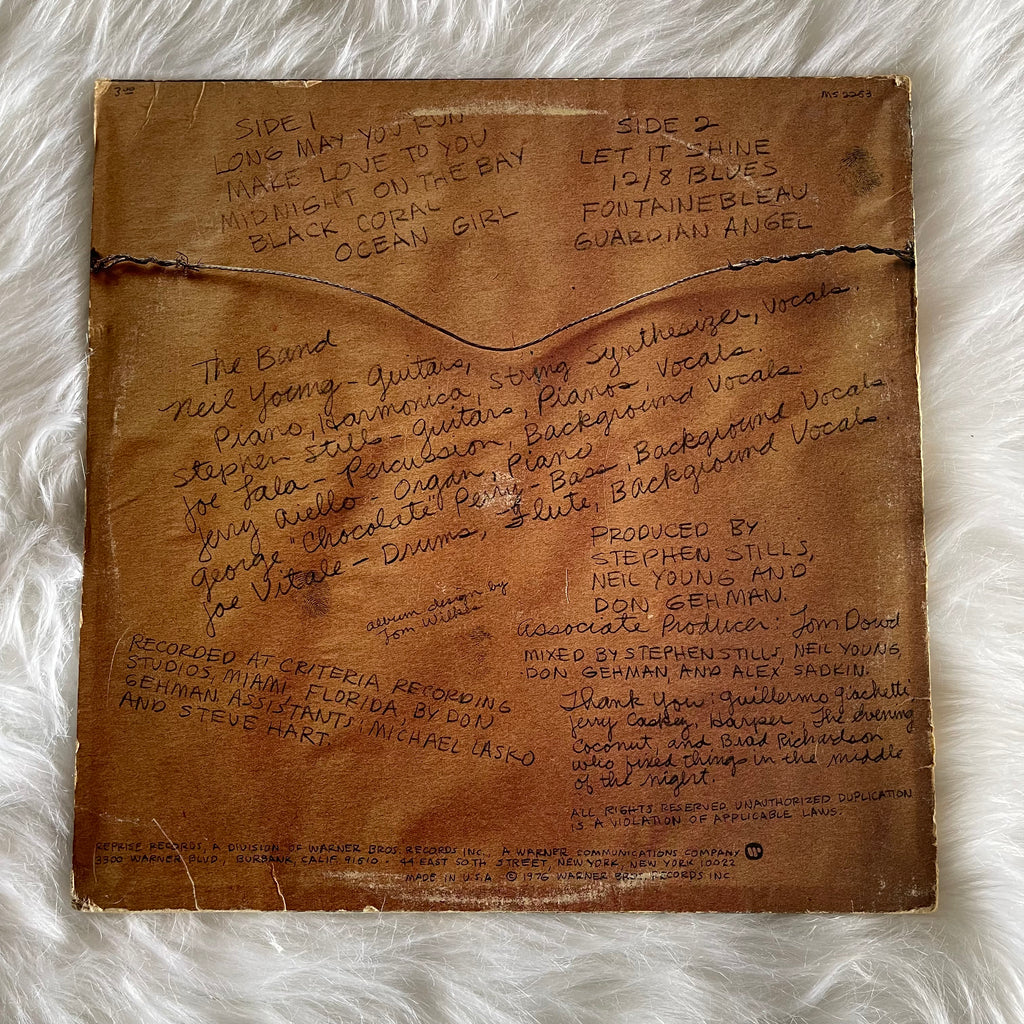 3.00
MS 2253
SIDE 1
LONG MAY YOU RUN
MAKE LOVE TO YOU
MIDNIGHT ON THE BAY
BLACK CORAL
OCEAN GIRL
SIDE 2
LET IT SHINE
12/8 BLUES
FONTAINEBLEAU
GUARDIAN ANGEL
The Band
Neil Young - Guitars,
Piano, Harmonica, String Synthesizer, Vocals.
Stephen Stills - Guitars, Pianos, Vocals.
Joe Lala - Percussion, Background Vocals.
Jerry Aiello - Organ, Piano
George "Chocolate" Perry - Bass, Background Vocals
Joe Vitale - Drums, Flute, Background Vocals.
album design by
Tom Wilkes
PRODUCED BY
STEPHEN STILLS,
NEIL YOUNG AND
DON GEHMAN.
Associate Producer: Tom Dowd
MIXED BY STEPHEN STILLS, NEIL YOUNG,
DON GEHMAN, AND ALEX SADKIN.
RECORDED AT CRITERIA RECORDING
STUDIOS, MIAMI, FLORIDA, BY DON
GEHMAN. ASSISTANTS: MICHAEL LASKO
AND STEVE HART.
Thank You: Guillermo Giachetti
Jerry Caskey, Harper, The evening
Coconut, and Brad Richardson
who fixed things in the middle
of the night.
ALL RIGHTS RESERVED. UNAUTHORIZED DUPLICATION
IS A VIOLATION OF APPLICABLE LAWS.
REPRISE RECORDS, A DIVISION OF WARNER BROS. RECORDS INC., A WARNER COMMUNICATIONS COMPANY
3300 WARNER BLVD., BURBANK, CALIF. 91510 · 44 EAST 50TH STREET, NEW YORK, NEW YORK 10022
MADE IN U.S.A. © 1976 WARNER BROS. RECORDS INC.